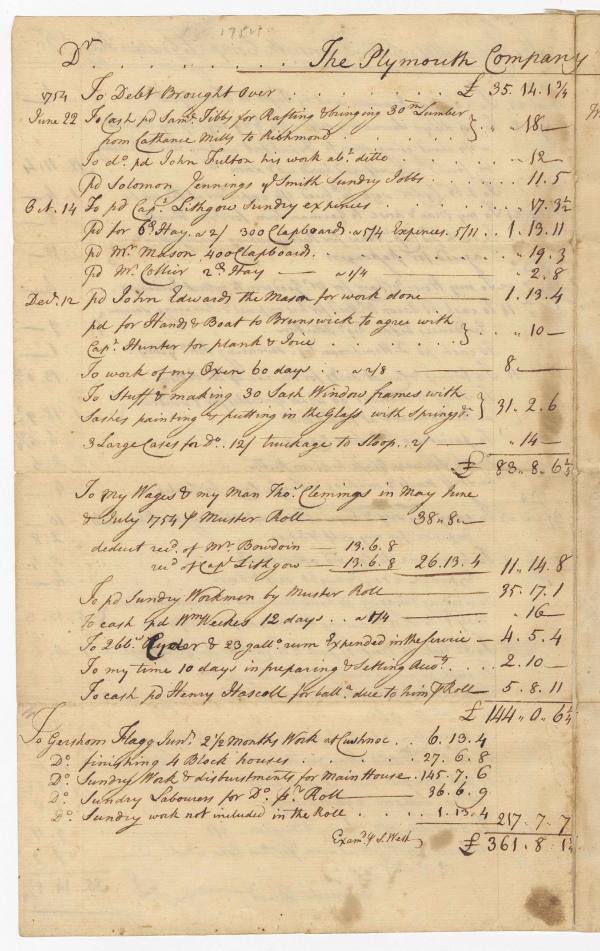 1754
Dr . . . . . . The Plymouth Company
1754 To Debt Brought Over . . . . . . £ 35.14.1 3/4
June 22 To Cash pd Saml Tibbs for Rafting & bringing 30m Lumber
from Cathance Mills to Richmond } . " " 18 —
To do pd John Fulton his work abt ditto . . . . " 12 —
pd Solomon Jennings & Smith Sundry Jobbs . . . . 11.5
Oct. 14 To pd Capt Lithgow Sundry expences . . . . " 17.3 1/2
pd for 6 Hay a 2/ 300 Clapboards a 5/4 Expences 5/11 . . 1.13.11
pd Mr Mason 400 Clapboards . . . . " 19.3
pd Mr Collier 2 Hay — a 1/4 — " 2.8
Decr. 12 pd John Edwards the Mason for work done — 1.13.4
pd for Hands & Boat to Brunswick to agree with
Capt Hunter for plank & Joice . . . . } . . " 10 —
To work of my Oxen 60 days . . a 2/8 . . . . 8 —
To Stuff & making 30 Sash Window frames with
Sashes painting & putting in the Glass with Springs &c } 31.2.6
3 Large Cases for Do. 12/ truckage to Sloop . . 2/ — " 14 —
£ 83.8.6 1/4
To my Wages & my Man Thos Clemings in May June
& July 1754 ⅌ Muster Roll — 38.8 —
deduct recd. of Mr. Bowdoin — 13.6.8
recd of Capt Lithgow — 13.6.8 26.13.4 11.14.8
To pd Sundry Workmen by Muster Roll — 35.17.1
To cash pd Wm Weekes 12 days . . a 1/4 — . 16 —
To 2 bbs Cyder & 23 gallo. rum Expended in the Service — 4.5.4
To my time 10 days in preparing & Setting Accts . . . . 2.10 —
To cash pd Henry Hascoll for balla due to him ⅌ Roll — 5.8.11
£ 144.0.6 1/4
To Gershom Flagg Junr. 2 1/2 months Work at Cushnoc . . 6.13.4
Do. finishing 4 Block houses . . . . 27.6.8
Do. Sundry Work & disburstments for Main House . 145.7.6
Do. Sundry Labourers for Do. pr Roll — 36.6.9
Do. Sundry work not included in the Roll . . . . 1.13.4 217.7.7
Examd. ⅌ S. West £ 361.8.1 1/4